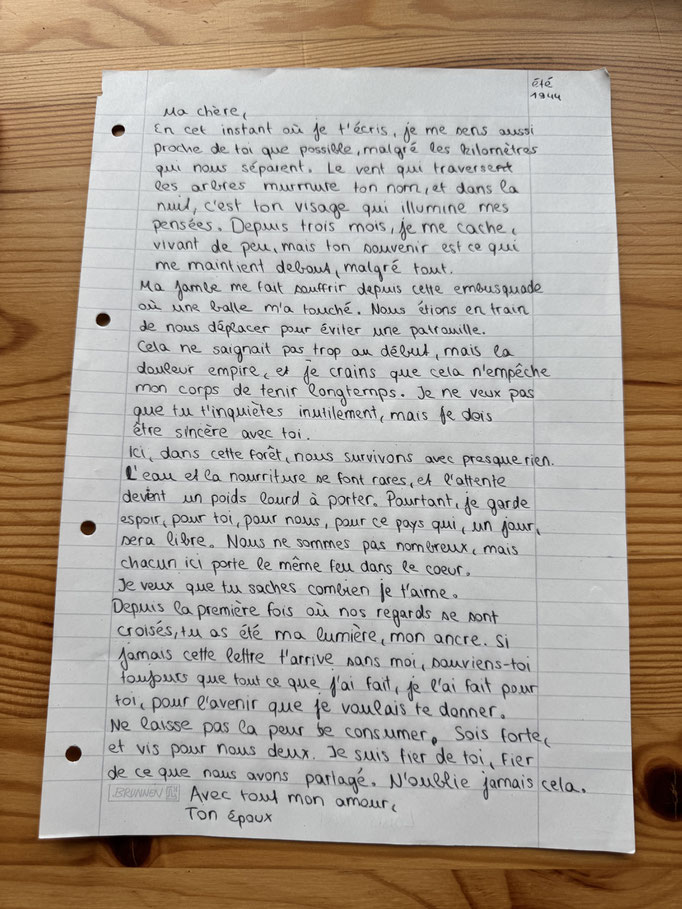 été
1944
Ma chère,
En cet instant où je t'écris, je me sens aussi
proche de toi que possible, malgré les kilomètres
qui nous séparent. Le vent qui traversent
les arbres murmure ton nom, et dans la
nuit, c'est ton visage qui illumine mes
pensées. Depuis trois mois, je me cache,
vivant de peu, mais ton souvenir est ce qui
me maintient debout, malgré tout.
Ma jambe me fait souffrir depuis cette embusquade
où une balle m'a touché. Nous étions en train
de nous déplacer pour éviter une patrouille.
Cela ne saignait pas trop au début, mais la
douleur empire, et je crains que cela n'empêche
mon corps de tenir longtemps. Je ne veux pas
que tu t'inquiètes inutilement, mais je dois
être sincère avec toi.
Ici, dans cette forêt, nous survivons avec presque rien.
L'eau et la nourriture se font rares, et l'attente
devient un poids lourd à porter. Pourtant, je garde
espoir, pour toi, pour nous, pour ce pays qui, un jour,
sera libre. Nous ne sommes pas nombreux, mais
chacun ici porte le même feu dans le coeur.
Je veux que tu saches combien je t'aime.
Depuis la première fois où nos regards se sont
croisés, tu as été ma lumière, mon ancre. Si
jamais cette lettre t'arrive sans moi, souviens-toi
toujours que tout ce que j'ai fait, je l'ai fait pour
toi, pour l'avenir que je voulais te donner.
Ne laisse pas la peur te consumer. Sois forte,
et vis pour nous deux. Je suis fier de toi, fier
de ce que nous avons partagé. N'oublie jamais cela.
BRUNNEN
Avec tout mon amour,
Ton époux